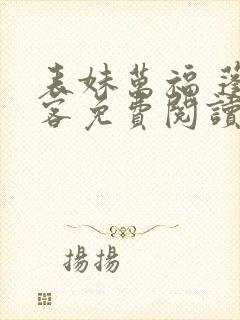 表妹萬福 蓬
客免費閱讀
揚揚